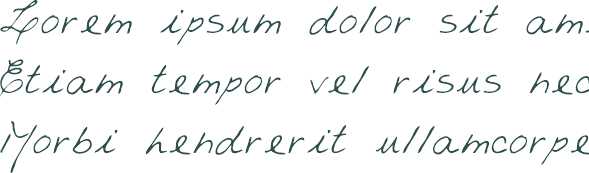 Lorem ipsum dolor sit am
Etiam tempor vel risus nec
Morbi hendrerit ullamcorpe